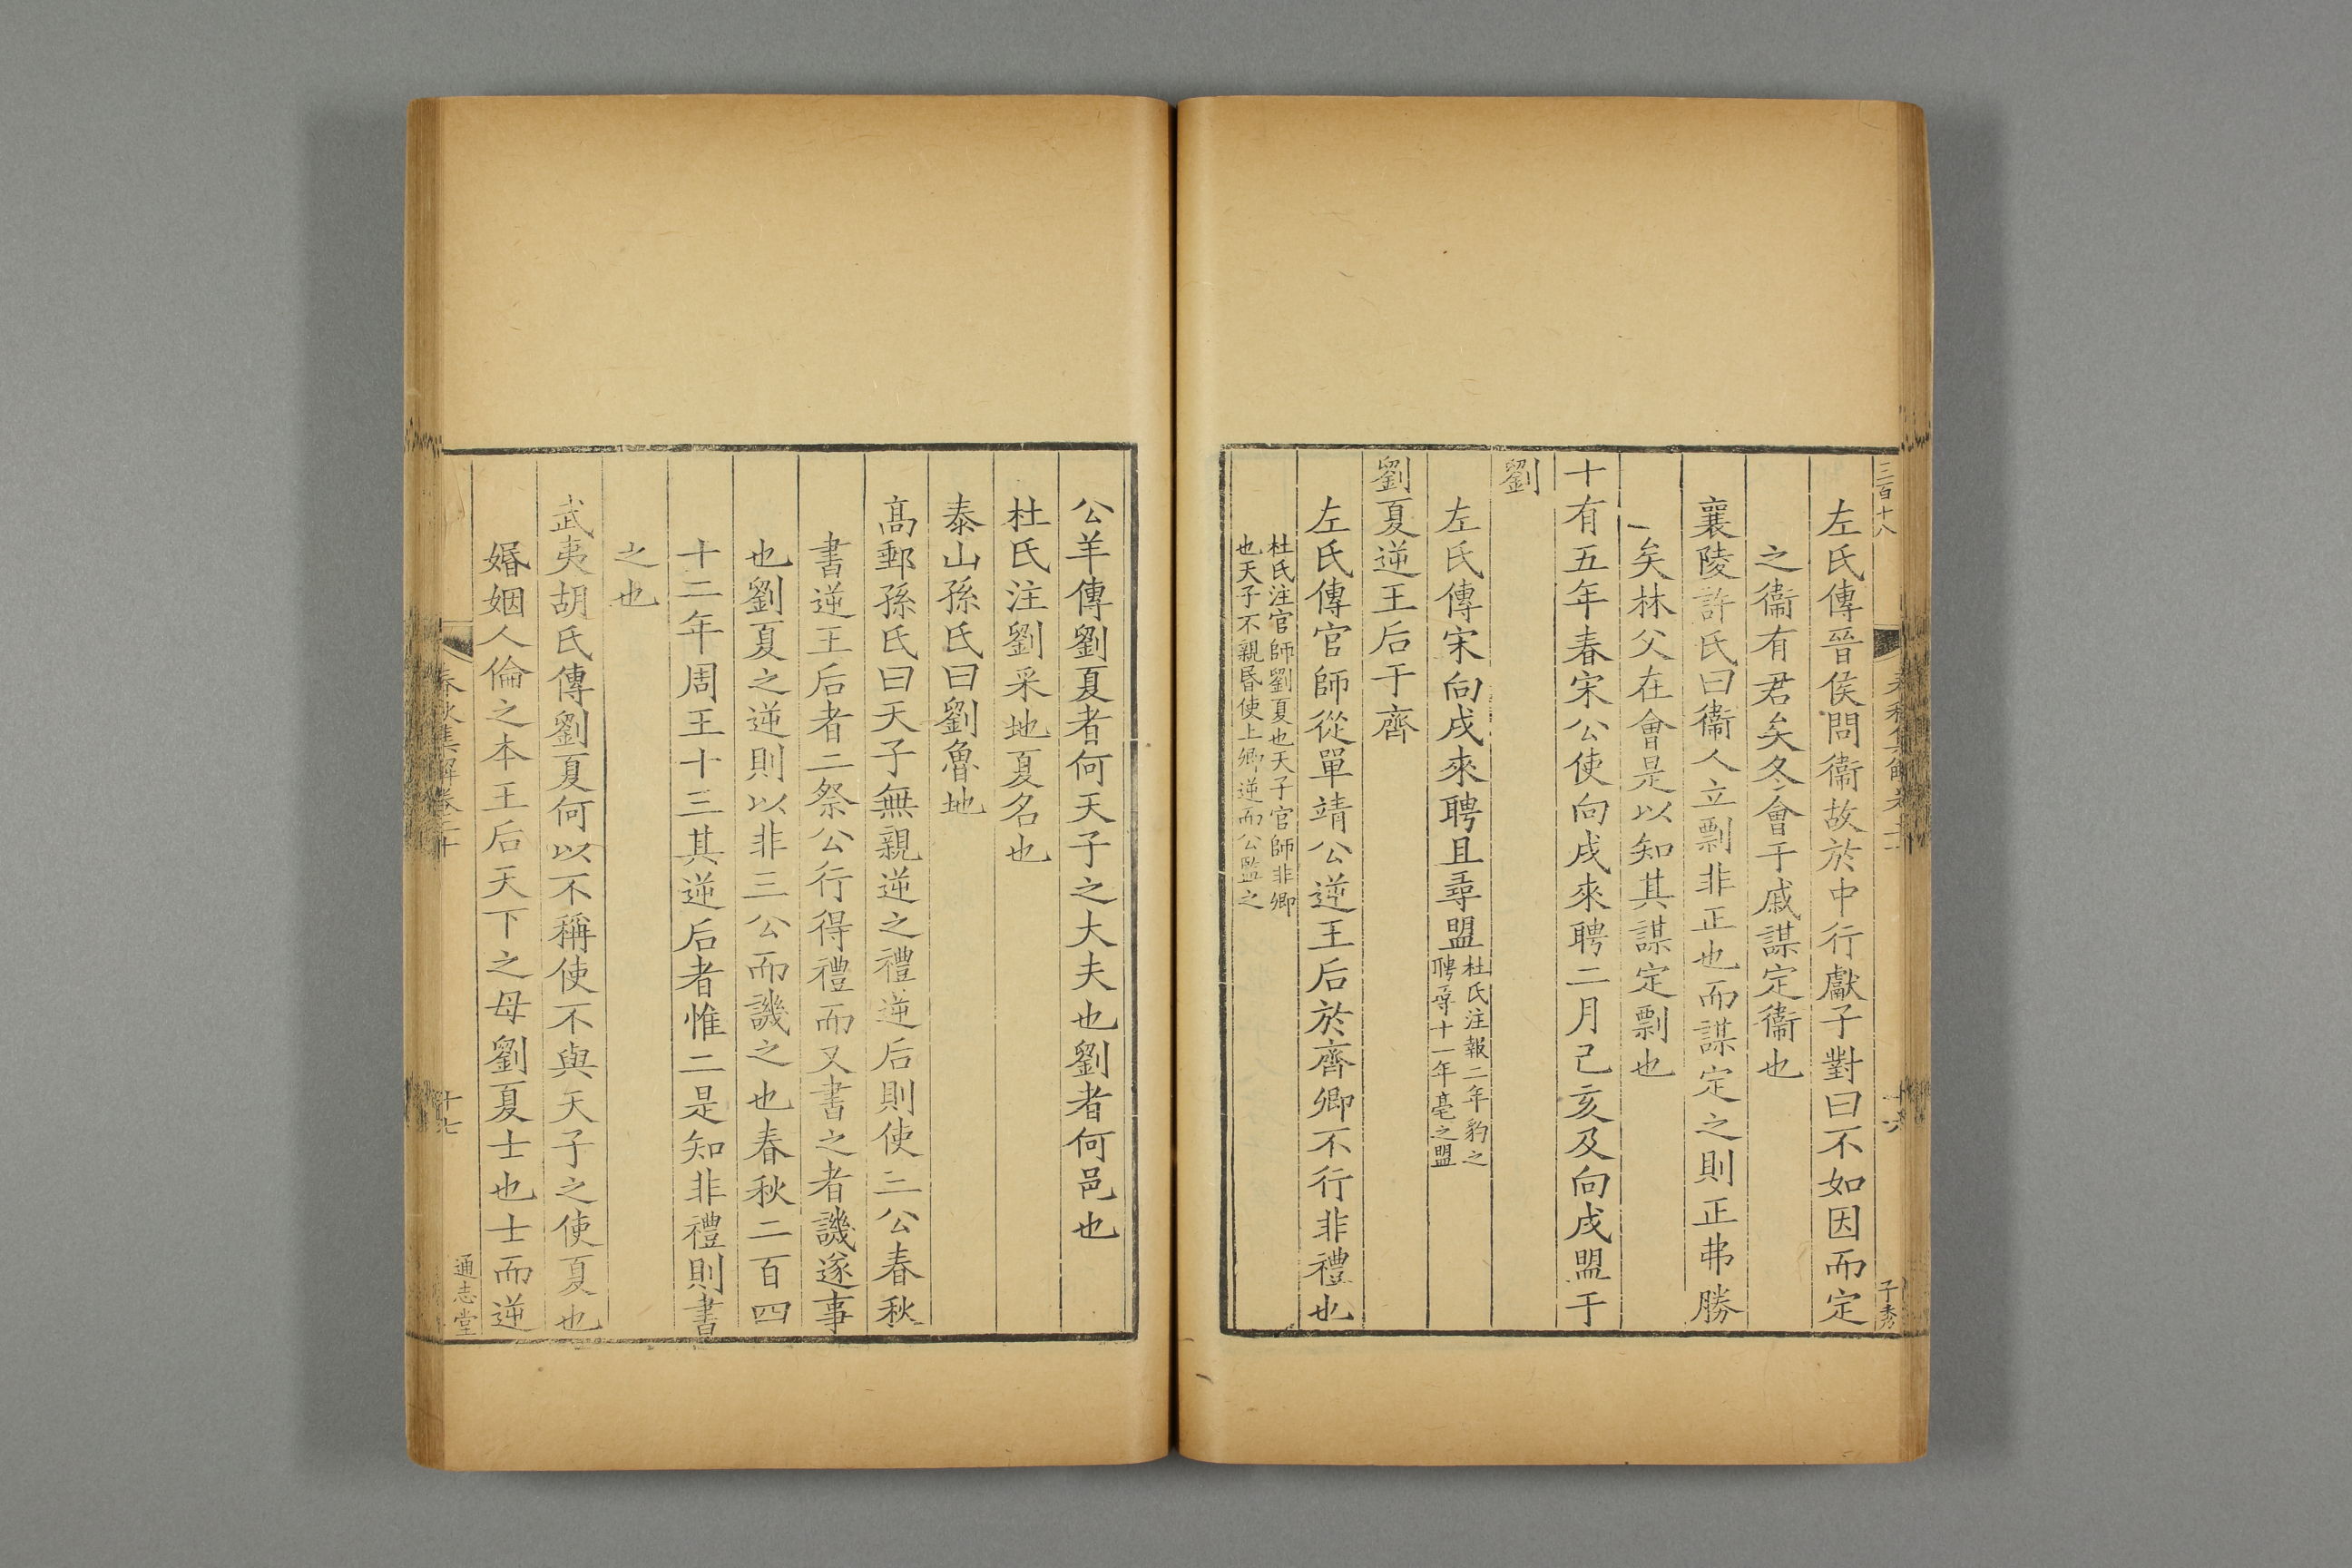 三百十八
子秀
左氏傳晉侯問衞故於中行獻子對曰不如因而定
之衞有君矣冬會于戚謀定衞也
襄陵許氏曰衞人立剽非正也而謀定之則正弗勝
矣林父在會是以知其謀定剽也
十有五年春宋公使向戌來聘二月己亥及向戌盟于
劉
左氏傳宋向戌來聘且尋盟
杜氏注報二年豹之
聘尋十一年亳之盟
劉夏逆王后于齊
左氏傳官師從單靖公逆王后於齊卿不行非禮也
杜氏注官師劉夏也天子官師非卿
也天子不親昬使上卿逆而公監之
公羊傳劉夏者何天子之大夫也劉者何邑也
杜氏注劉采地夏名也
泰山孫氏曰劉魯地
高郵孫氏曰天子無親逆之禮逆后則使三公春秋
書逆王后者二祭公行得禮而又書之者譏遂事
也劉夏之逆則以非三公而譏之也春秋二百四
十二年周王十三其逆后者惟二是知非禮則書
之也
武夷胡氏傳劉夏何以不稱使不與天子之使夏也
婚姻人倫之本王后天下之母劉夏士也士而逆
春秋集解卷二十
十七
通志堂